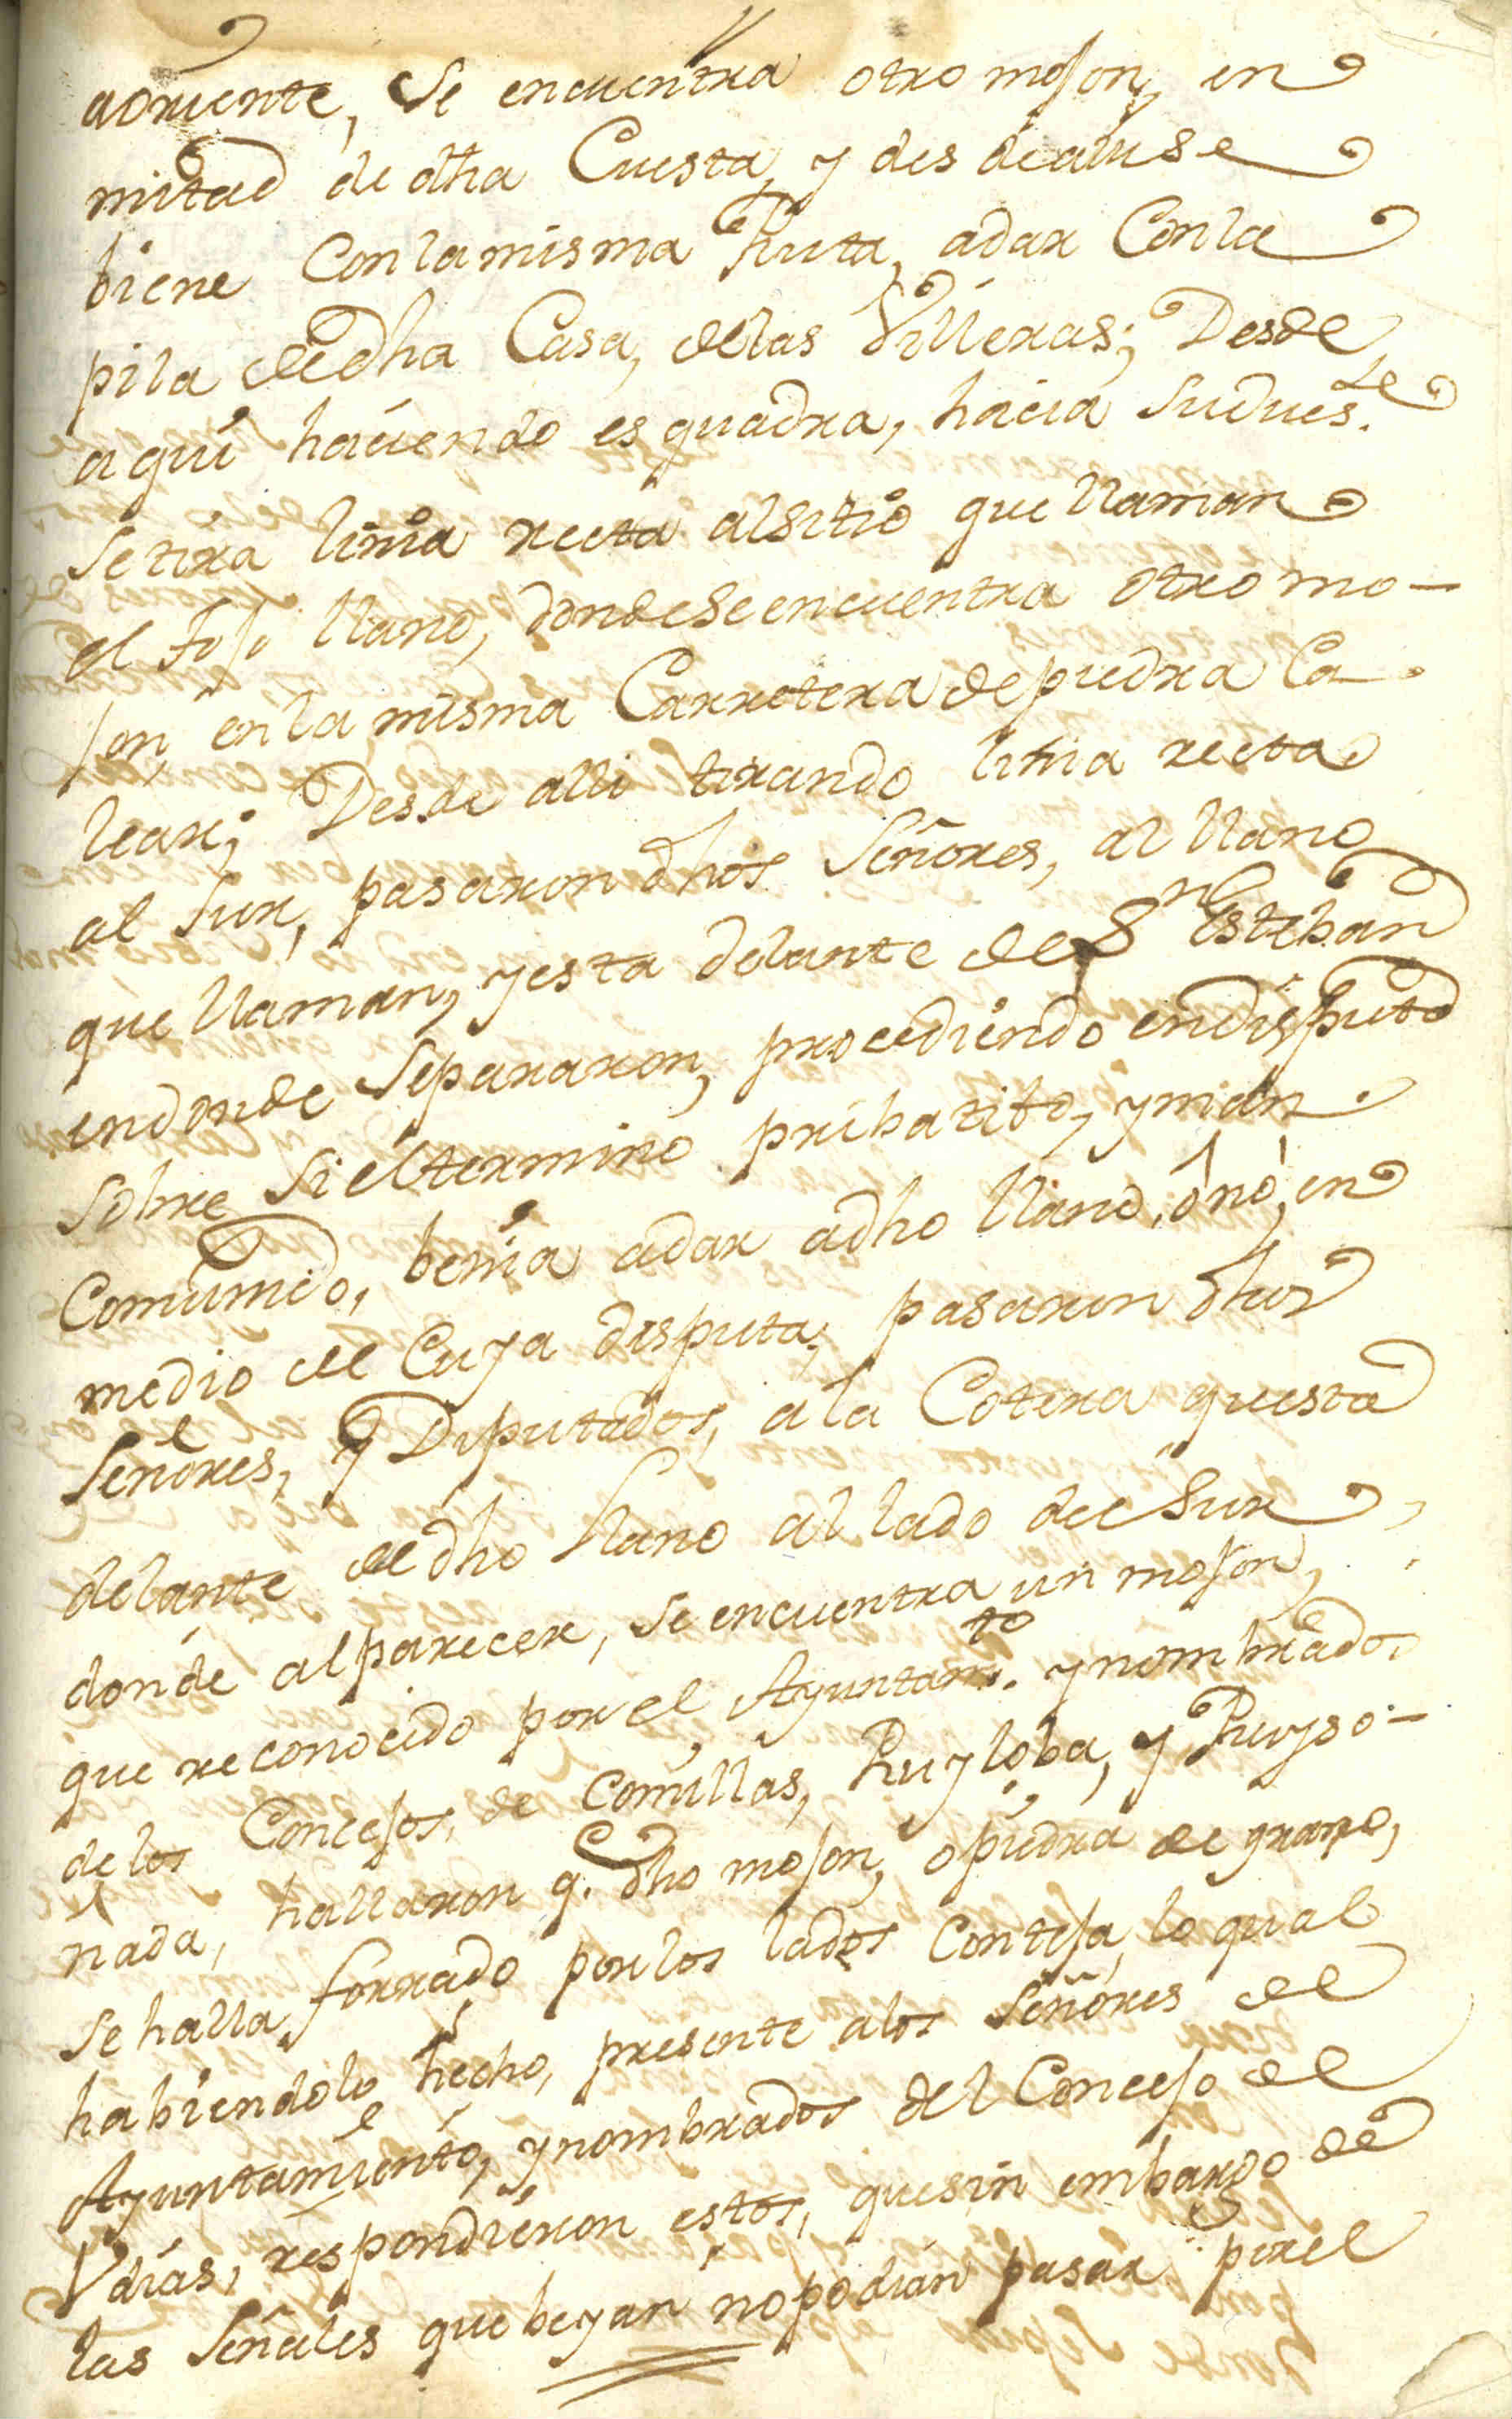 aoriente, Se encuentra otro mojon, en
mitad de dha Cuesta, y des dealuse
biene Conlamisma Ruta, adar Conla
pila dedha Casa, delas Villeras; Desde
aqui haciendo esquadra, hacia Sudues.te
Setira linia recta alsitio que llaman
el Fojo llano, dondeSeencuentra otro mo-
jon, en la misma Carretera depiedra Ca-
lear; Desde alli tirando linia recta
al Sur, pasaron dhos Señores, al llano
que llaman, y esta delante de Sn Esteban
endonde Separaron, procediendo endisputa
Sobre Si eltermino pribatibo, yman.
Comunido, benia adar adho llano, ó nó, en
medio de Cuya disputa, pasaron dhos
Señores, y Diputados, a la Cotera questa
delante de dho llano al lado del Sur
donde alparecer, Se encuentra un mojon,
que reconocido por el Ayuntam.to ynombrados
de los Concejos, de Comillas, Ruyloba, y Ruyso-
ñada, hallaron q. dho mojon, opiedra de grano,
Se halla forrado porlos lados Conteja, lo qual
habiendolo hecho, presente alos Señores de
Ayuntamiento, ynombrados del Concejo de
Vdias, respondieron estos, quesin embargo de
las Señales que beyan nopodian pasar porel